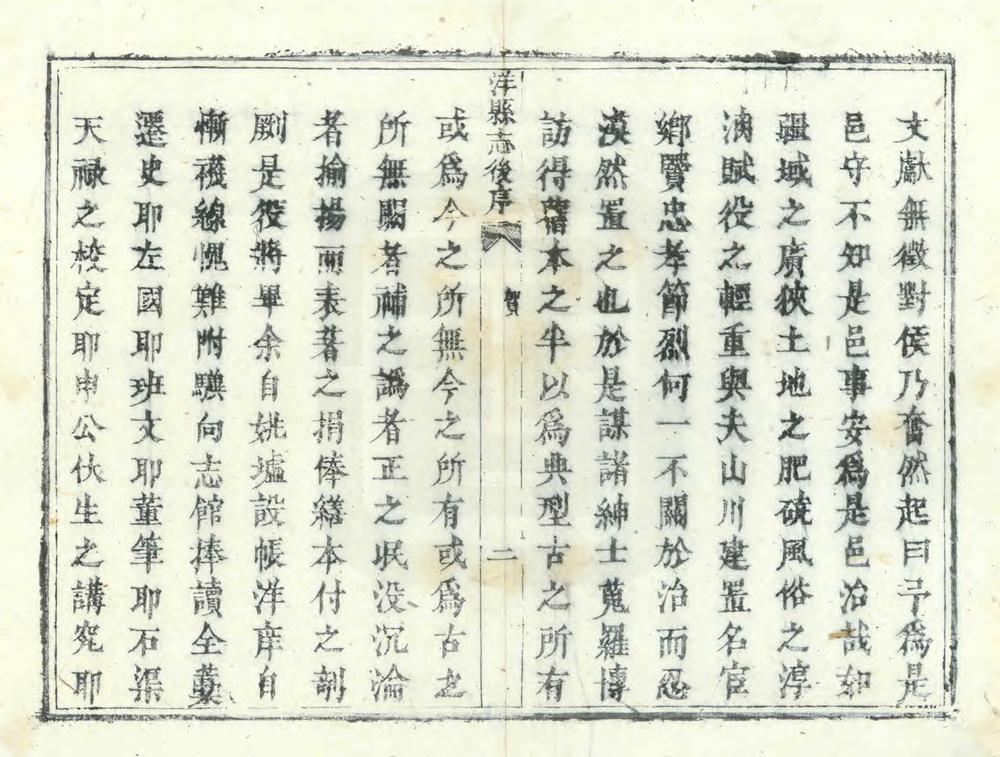 文獻無徵對侯乃奮然起曰予為是
邑守不知是邑事安為是邑治哉如
疆域之廣狹土地之肥磽風俗之淳
漓賦役之輕重與夫山川建置名宦
鄉賢忠孝節烈何一不關於治而忍
漠然置之也於是謀諸紳士蒐羅博
訪得舊本之半以為典型古之所有
洋縣志後序 賀 二
或為今之所無今之所有或為古之
所無賜者補之譌者正之泯没沉淪
者揄揚而表著之捐俸繕本付之剞
劂是役將畢余自姚墟設帳洋庠自
慚襪線愧難附驥向志館捧讀全藁
遷史耶左國耶班文耶董筆耶石渠
天禄之校定耶申公伏生之講究耶